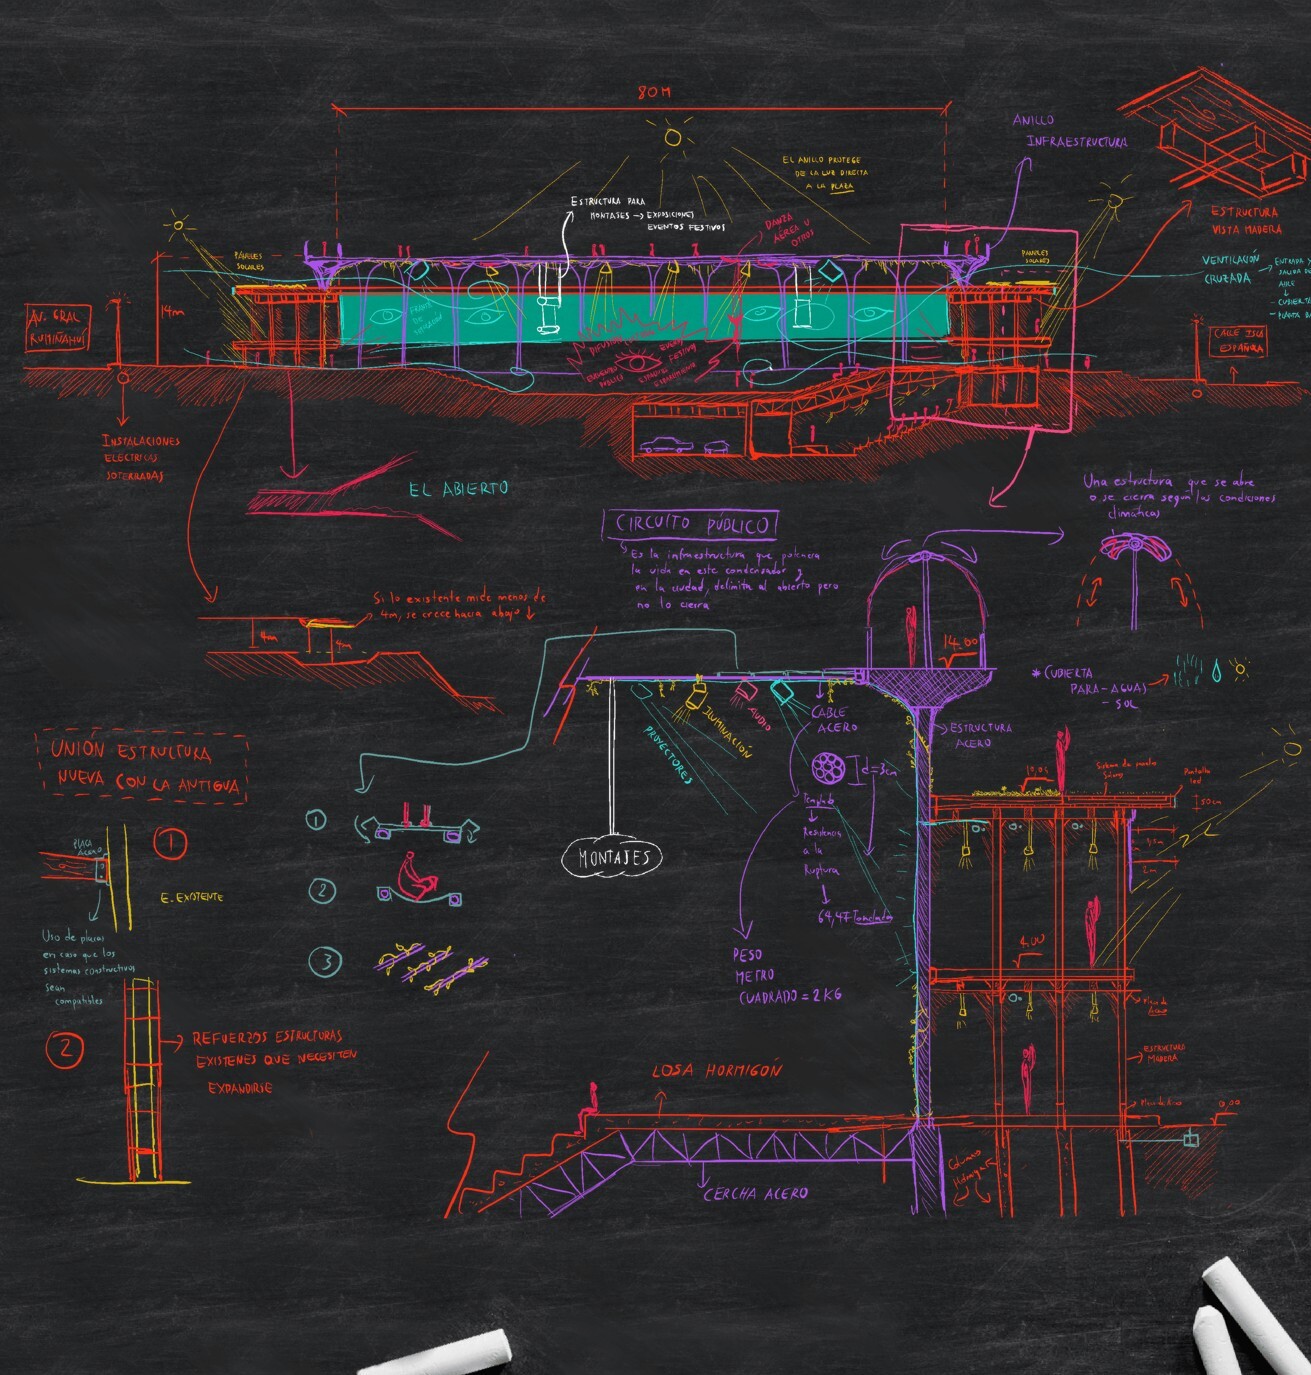 80M
ANILLO
INFRAESTRUCTURA
EL ANILLO PROTEGE
DE LA LUZ DIRECTA
A LA PLAZA
ESTRUCTURA PARA
MONTAJES → EXPOSICIONES
EVENTOS FESTIVOS
DANZA
AÉREA U
OTROS
ESTRUCTURA
VISTA MADERA
PANELES
SOLARES
PANELES
SOLARES
VENTILACIÓN
CRUZADA
ENTRADA Y
SALIDA DE
AIRE
CUBIERTA
14m
AV. GRAL
RUMIÑAHUI
CALLE ISLA
ESPAÑOLA
INSTALACIONES
ELÉCTRICAS
SOTERRADAS
EL ABIERTO
Una estructura que se abre
o se cierra según las condiciones
climáticas
CIRCUITO PÚBLICO
Es la infraestructura que potencia
la vida en este condensador y
en la ciudad, delimita al abierto pero
no lo cierra
Si lo existente mide menos de
4m, se crece hacia abajo ↓
4m
4m
14.00
* CUBIERTA
PARA-AGUAS
- SOL
UNIÓN ESTRUCTURA
NUEVA CON LA ANTIGUA
PROYECTORES
ILUMINACIÓN
AUDIO
CABLE
ACERO
ESTRUCTURA
ACERO
d=3cm
Pantalla
led
50cm
Templado
Resistencia
a la
Ruptura
64,47 Toneladas
1
2
3
MONTAJES
PLACA
ACERO
1
E. EXISTENTE
Uso de placas
en caso que los
sistemas constructivos
sean
compatibles
2m
4.00
PESO
METRO
CUADRADO = 2KG
2
REFUERZOS ESTRUCTURAS
EXISTENES QUE NECESITEN
EXPANDIRSE
ESTRUCTURA
MADERA
LOSA HORMIGÓN
0,00
CERCHA ACERO